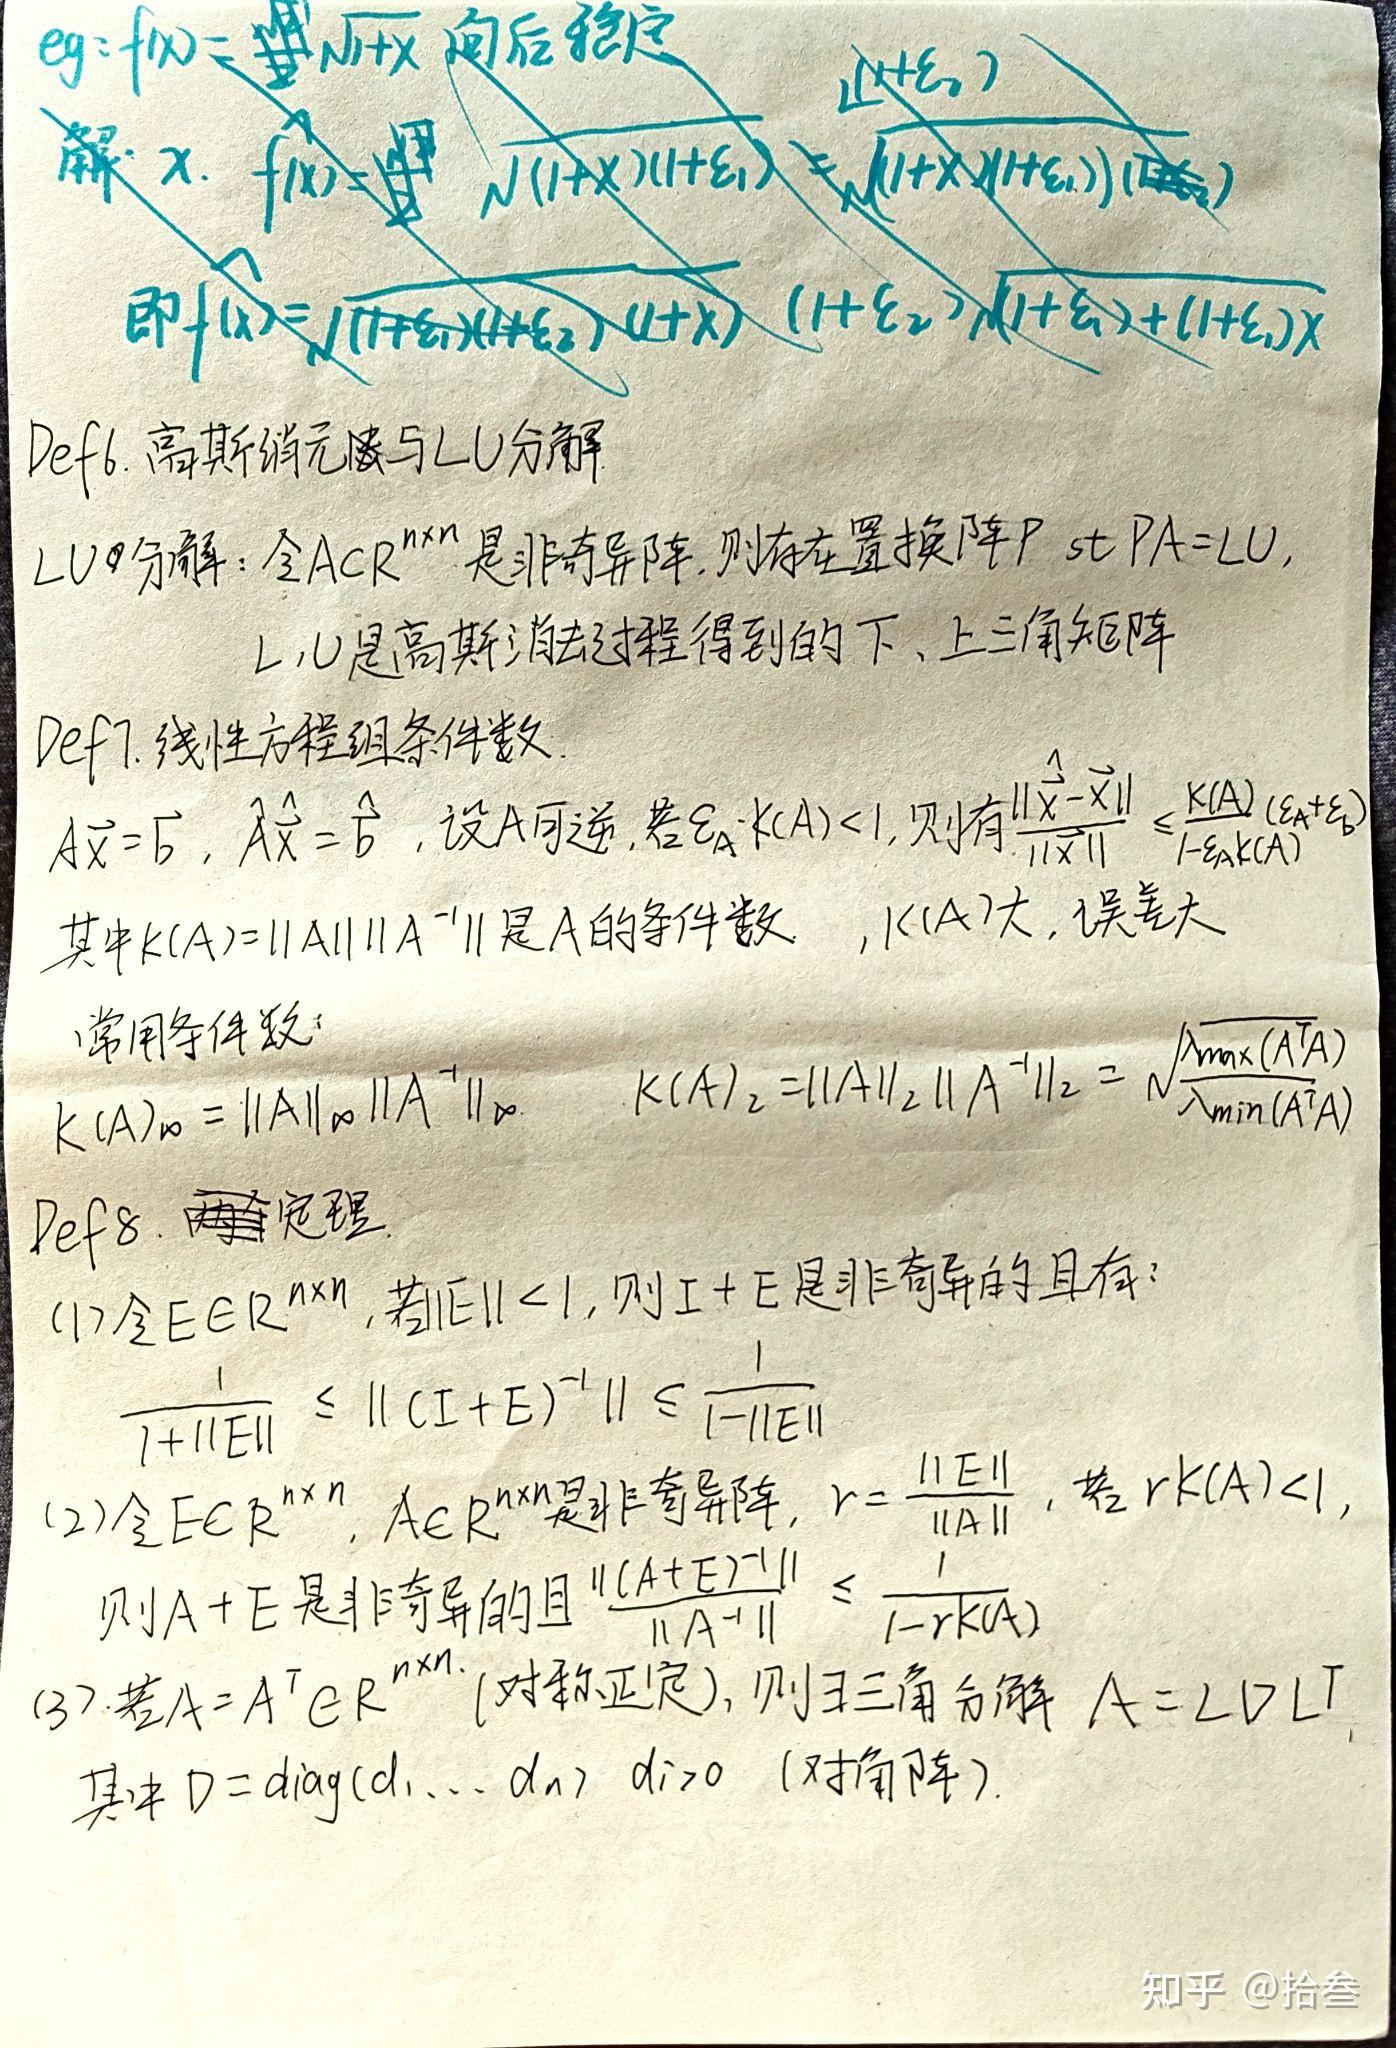 eg: f(x)= √1+x 向后稳定
(1+ε₂)
解: x. f̂(x)= √(1+x)(1+ε₁) = √((1+x)(1+ε₁))
即f̂(x)=√(1+ε₁)(1+ε₂) (1+x) (1+ε₂)√(1+ε₁)+(1+ε₁)x
Def6. 高斯消元法与LU分解
LU分解: 令A⊂Rⁿˣⁿ是非奇异阵,则存在置换阵P st PA=LU,
L,U是高斯消去过程得到的下、上三角矩阵
Def7. 线性方程组条件数.
Ax⃗=b⃗, Âx̂=b̂, 设A可逆,若ε_A·K(A)<1,则有 ||x̂⃗-x⃗||/||x⃗|| ≤ K(A)/(1-ε_A K(A)) (ε_A+ε_b)
其中K(A)=||A|| ||A⁻¹||是A的条件数 ,K(A)大,误差大
常用条件数:
K(A)∞=||A||∞||A⁻¹||∞. K(A)₂=||A||₂||A⁻¹||₂=√(λmax(AᵀA)/λmin(AᵀA))
Def8. 定理.
(1)令E∈Rⁿˣⁿ,若||E||<1,则I+E是非奇异的且有:
1/(1+||E||) ≤ ||(I+E)⁻¹|| ≤ 1/(1-||E||)
(2)令E∈Rⁿˣⁿ, A∈Rⁿˣⁿ是非奇异阵, r=||E||/||A||, 若rK(A)<1,
则A+E是非奇异的且 ||(A+E)⁻¹||/||A⁻¹|| ≤ 1/(1-rK(A))
(3).若A=Aᵀ∈Rⁿˣⁿ.(对称正定),则∃三角分解 A=LDLᵀ,
其中D=diag(d₁...dₙ) di>0 (对角阵).
知乎 @拾叁